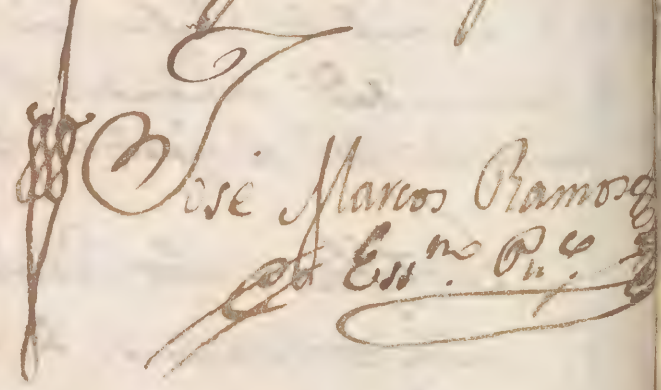 José Marcos Ramos
Ess.no Pu.co